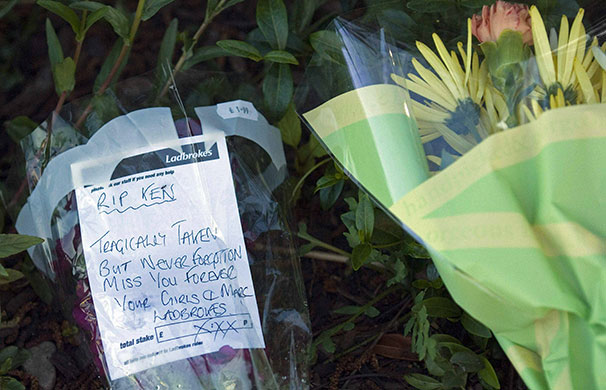 £1.99
Ladbrokes
please ask our staff if you need any help
RIP KEN
TRAGICALLY TAKEN
BUT NEVER FORGOTTON
MISS YOU FOREVER
YOUR GIRLS & MARC
LADBROKES
total stake £ XXX P